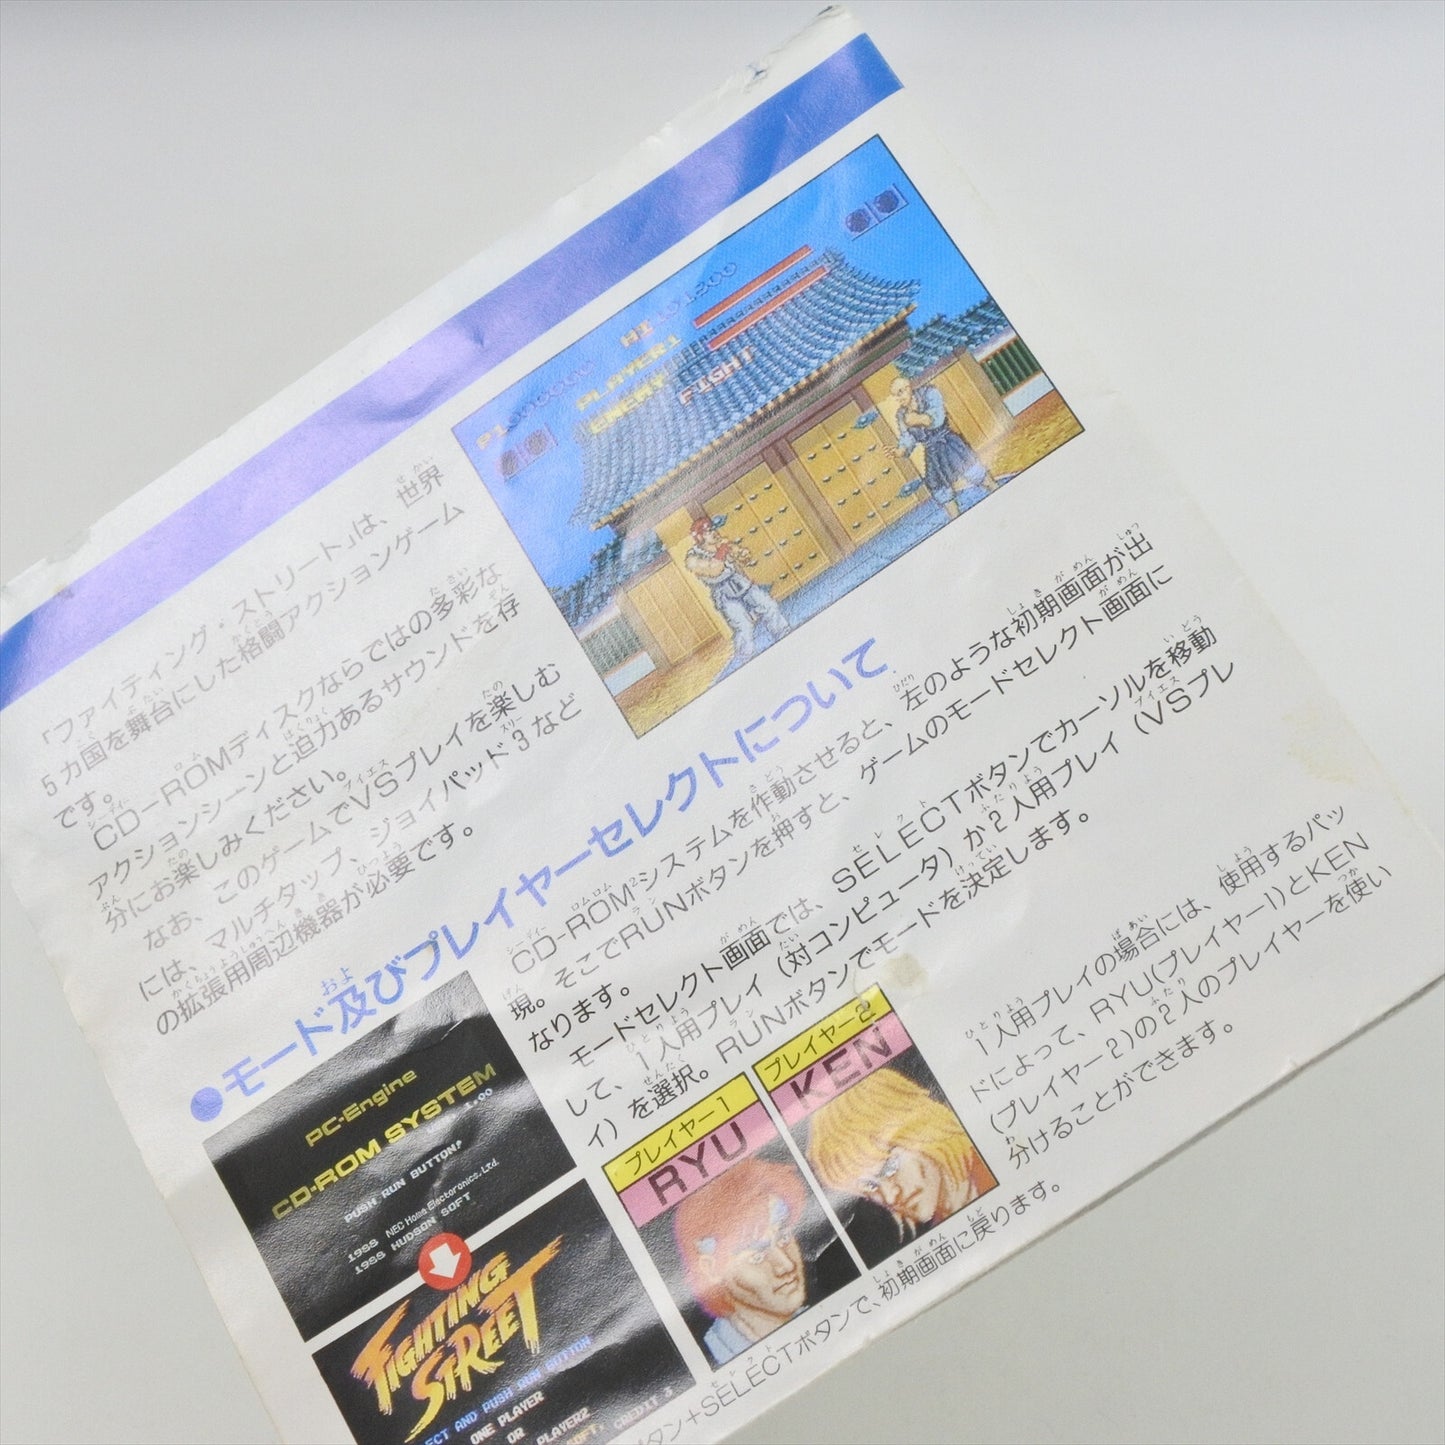 「ファイティング・ストリート」は、世界
5カ国を舞台にした格闘アクションゲーム
です。
CD-ROMディスクならではの多彩な
アクションシーンと迫力あるサウンドを存
分にお楽しみください。
なお、このゲームでVSプレイを楽しむ
には、マルチタップ、ジョイパッド3など
の拡張用周辺機器が必要です。
HI
PLAYER1
ENEMY
FIGHT
●モード及びプレイヤーセレクトについて
CD-ROM²システムを作動させると、左のような初期画面が出
現。そこでRUNボタンを押すと、ゲームのモードセレクト画面に
なります。
モードセレクト画面では、SELECTボタンでカーソルを移動
して、1人用プレイ（対コンピュータ）か2人用プレイ（VSプレ
イ）を選択。RUNボタンでモードを決定します。
PC-Engine
CD-ROM SYSTEM
1.00
PUSH RUN BUTTON!
1988 NEC Home Electoronics,Ltd.
1988 HUDSON SOFT
FIGHTING
STREET
ECT AND PUSH RUN BUTTON
ONE PLAYER
OR PLAYER2
SOFT. CREDIT 3
プレイヤー1
RYU
プレイヤー2
KEN
1人用プレイの場合には、使用するパッ
ドによって、RYU(プレイヤー1)とKEN
(プレイヤー2)の2人のプレイヤーを使い
分けることができます。
タン+SELECTボタンで、初期画面に戻ります。